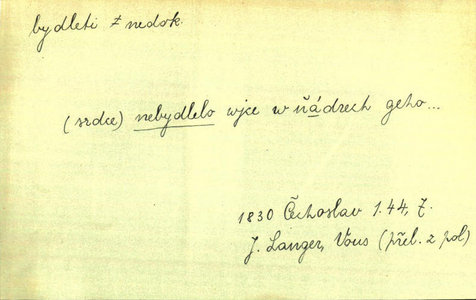 bydleti ž nedok.
(srdce) nebydlelo wjce w ňádrech geho...
1830 Čechoslav 1.44, 7.
J. Langer, Vous (přel. z pol)